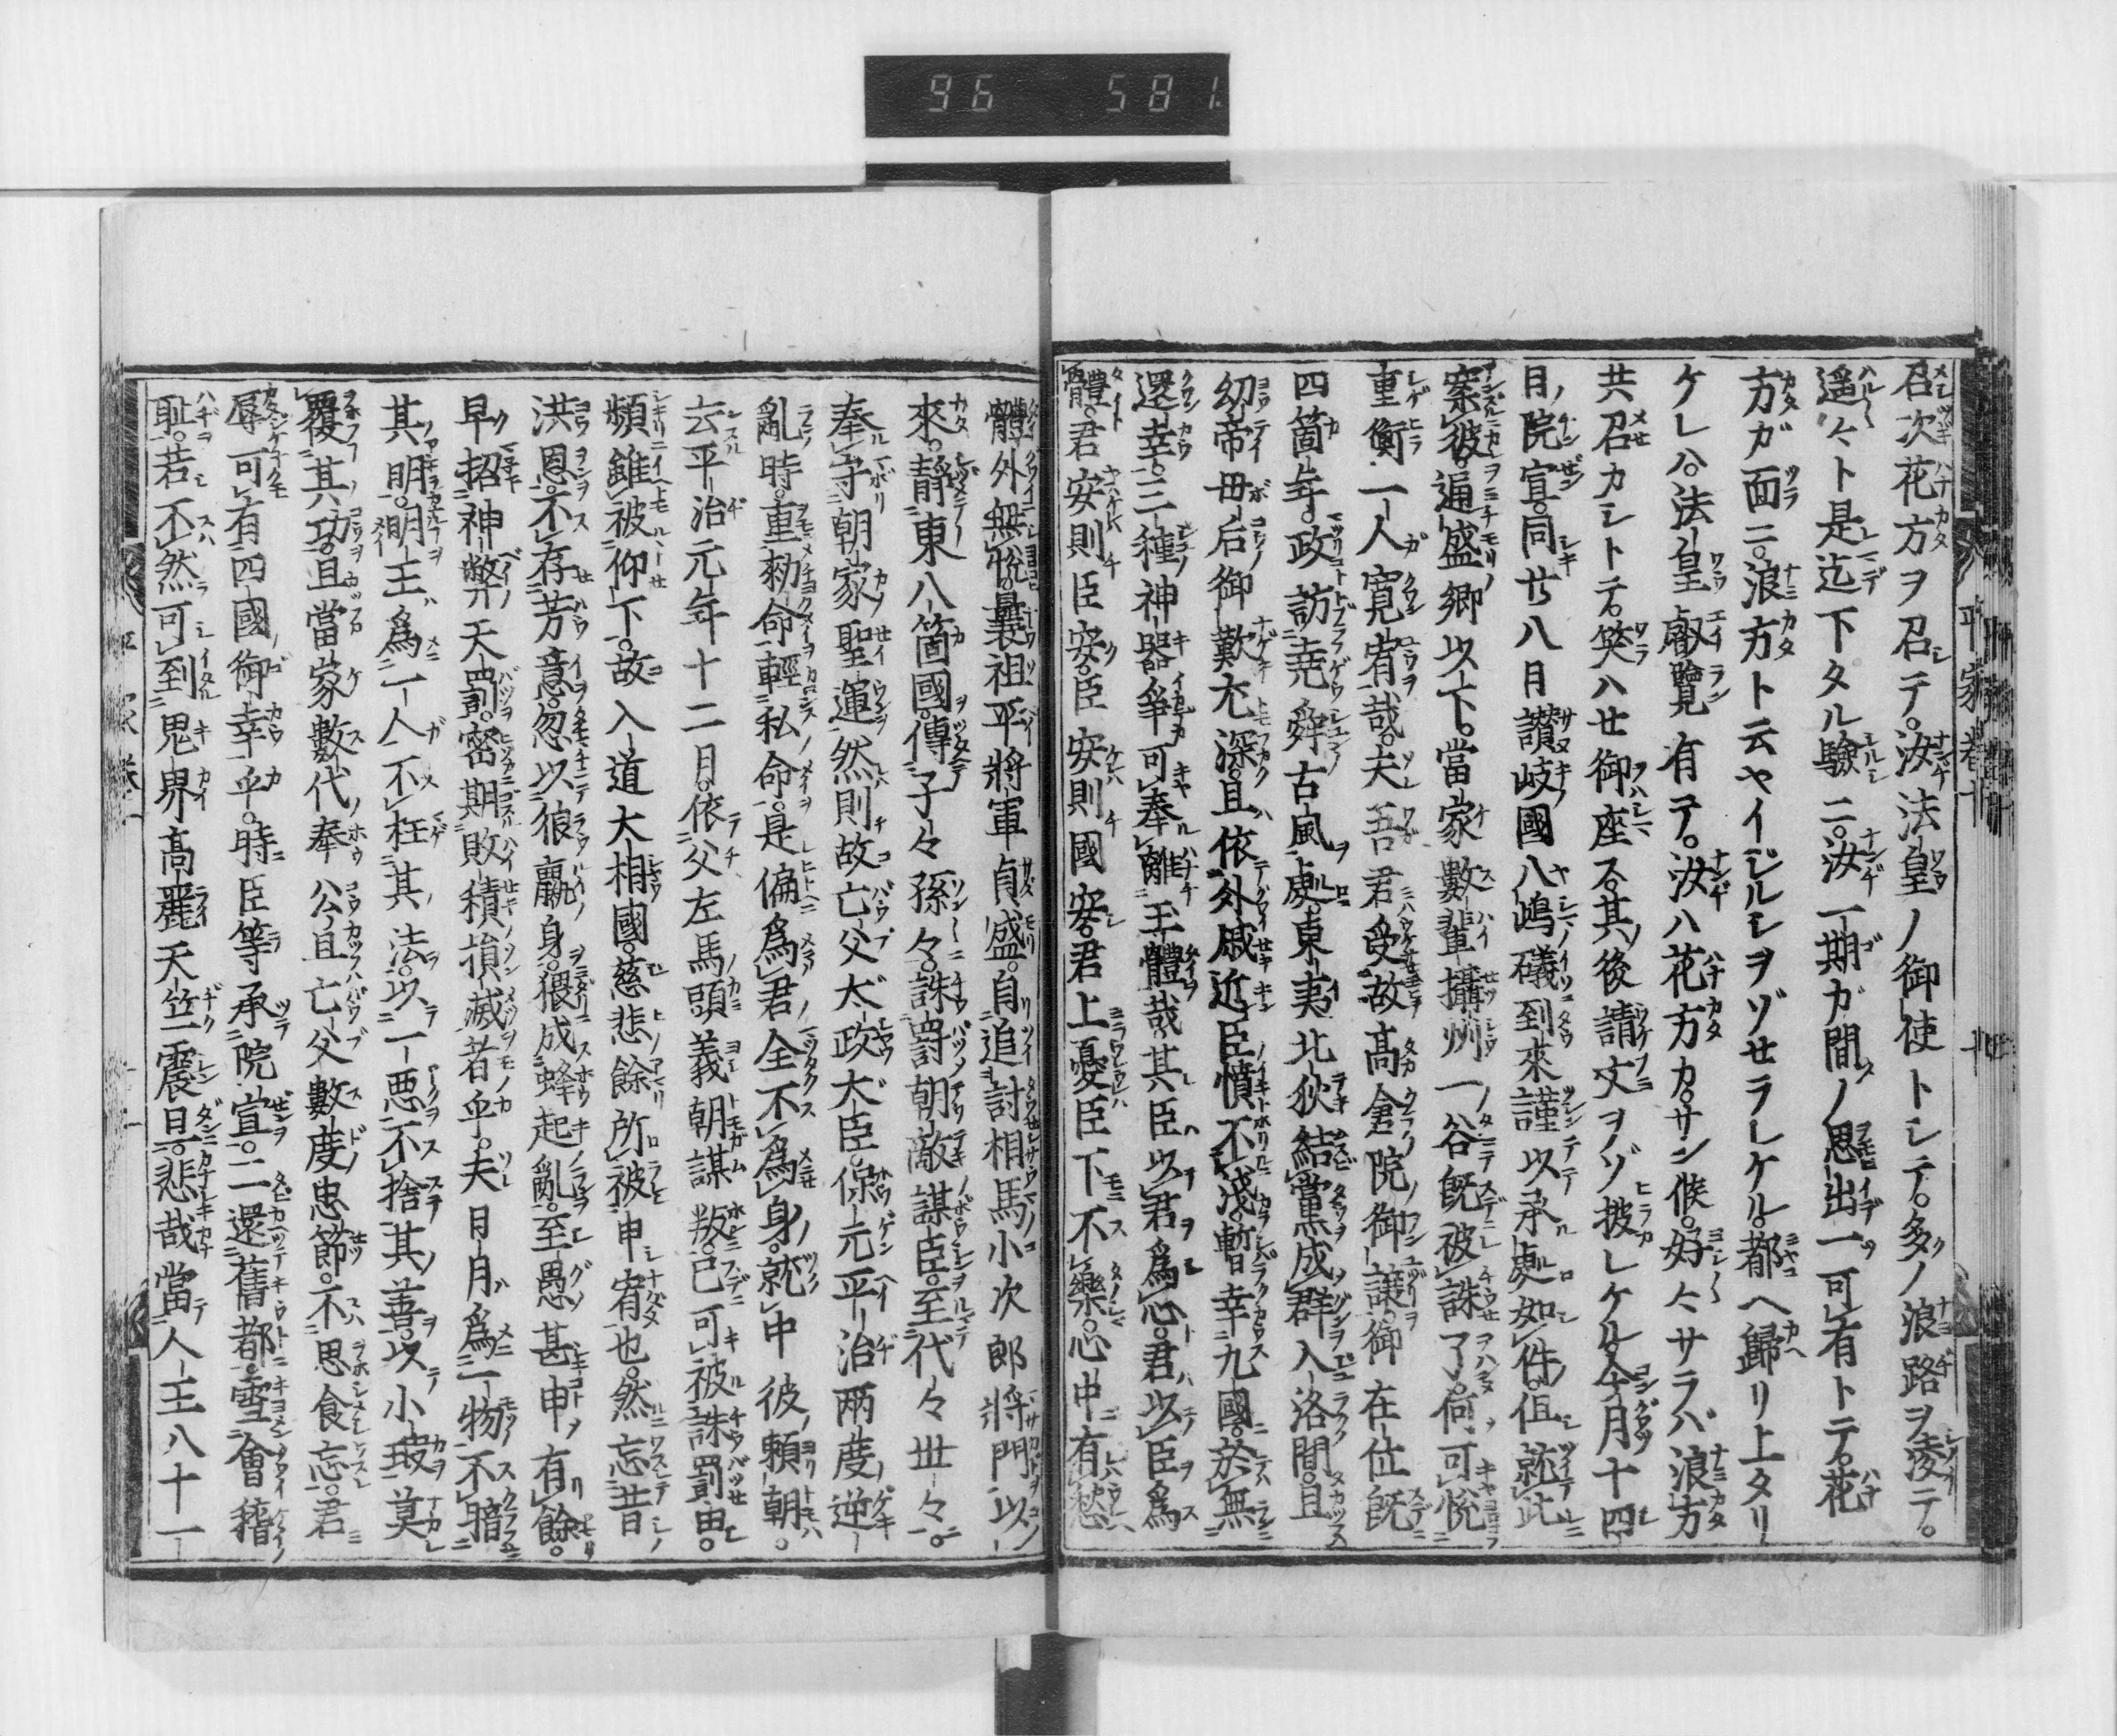 96 581.
召次花方ヲ召テ。汝法皇ノ御使トシテ。多ノ浪路ヲ凌テ。
遥々ト是迄下タル驗ニ。汝一期ガ間ノ思出一可有トテ。花
方ガ面ニ。浪方ト云ヤイジルシヲゾセラレケル。都ヘ歸リ上タリ
ケレハ。法皇叡覽有テ。汝ハ花方カ。サン候。好々サラバ浪方
共召カシトテ。笑ハセ御座ス。其後請文ヲゾ披レケル。今月十四
日院宣。同廿八月讃岐國八嶋礒到來謹以承處如件。但就此
案彼。通盛卿以下。當家數輩攝州一谷既被誅了。何可悅
重衡一人寛宥哉。夫吾君受故高倉院御讓。御在位既
四箇年。政訪堯舜古風處。東夷北狄結黨成群入洛間。且
幼帝母后御歎尤深。且依外戚近臣憤不淺。暫幸九國。於無
還幸。三種神器爭可奉離玉體哉。其臣以君爲心。君以臣爲
體。君安則臣安。臣安則國安。君上憂臣下不樂。心中有愁
體外無悅。曩祖平將軍貞盛。自追討相馬小次郎將門以
來。靜東八箇國。傳子々孫々。誅罰朝敵謀臣。至代々世々。
奉守朝家聖運。然則故亡父太政大臣。保元平治兩度逆
亂時。重勅命輕私命。是偏爲君全不爲身。就中彼賴朝。
去平治元年十二月。依父左馬頭義朝謀叛。已可被誅罰由。
頻雖被仰下。故入道大相國。慈悲餘所被申宥也。然忘昔
洪恩。不存芳意。忽以狼羸身。猥成蜂起亂。至愚甚申有餘。
早招神弊天罰。密期敗積損滅者乎。夫日月爲一物不暗
其明。明王爲一人不枉其法。以一悪不捨其善。以小瑕莫
覆其功。且當家數代奉公。且亡父數度忠節。不思食忘。君
辱可有四國御幸乎。時臣等承院宣。二還舊都。雪會稽
耻。若不然可到鬼界高麗天竺震旦。悲哉當人王八十一
平家卷十